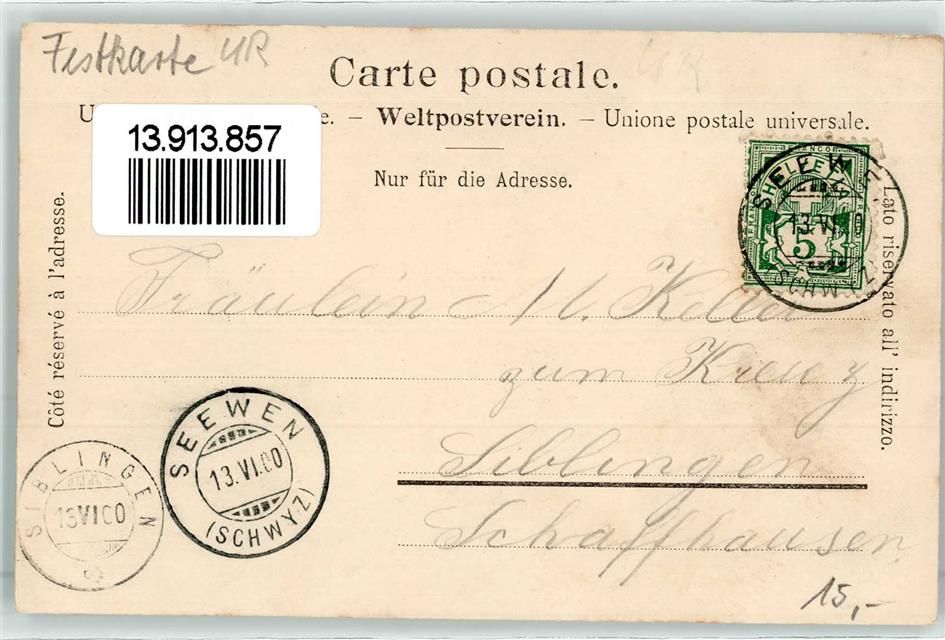 Festkarte UR
Carte postale.
U e. – Weltpostverein. – Unione postale universale.
13.913.857
Nur für die Adresse.
Côté réservé à l'adresse.
Lato riservato all' indirizzo.
SEEWEN
13.VI.00
5
SCHWYZ
Fräulein M. Keller
zum Kreuz
Siblingen
Schaffhausen
SEEWEN
13.VI.00
(SCHWYZ)
SIBLINGEN
13VI00
15,-